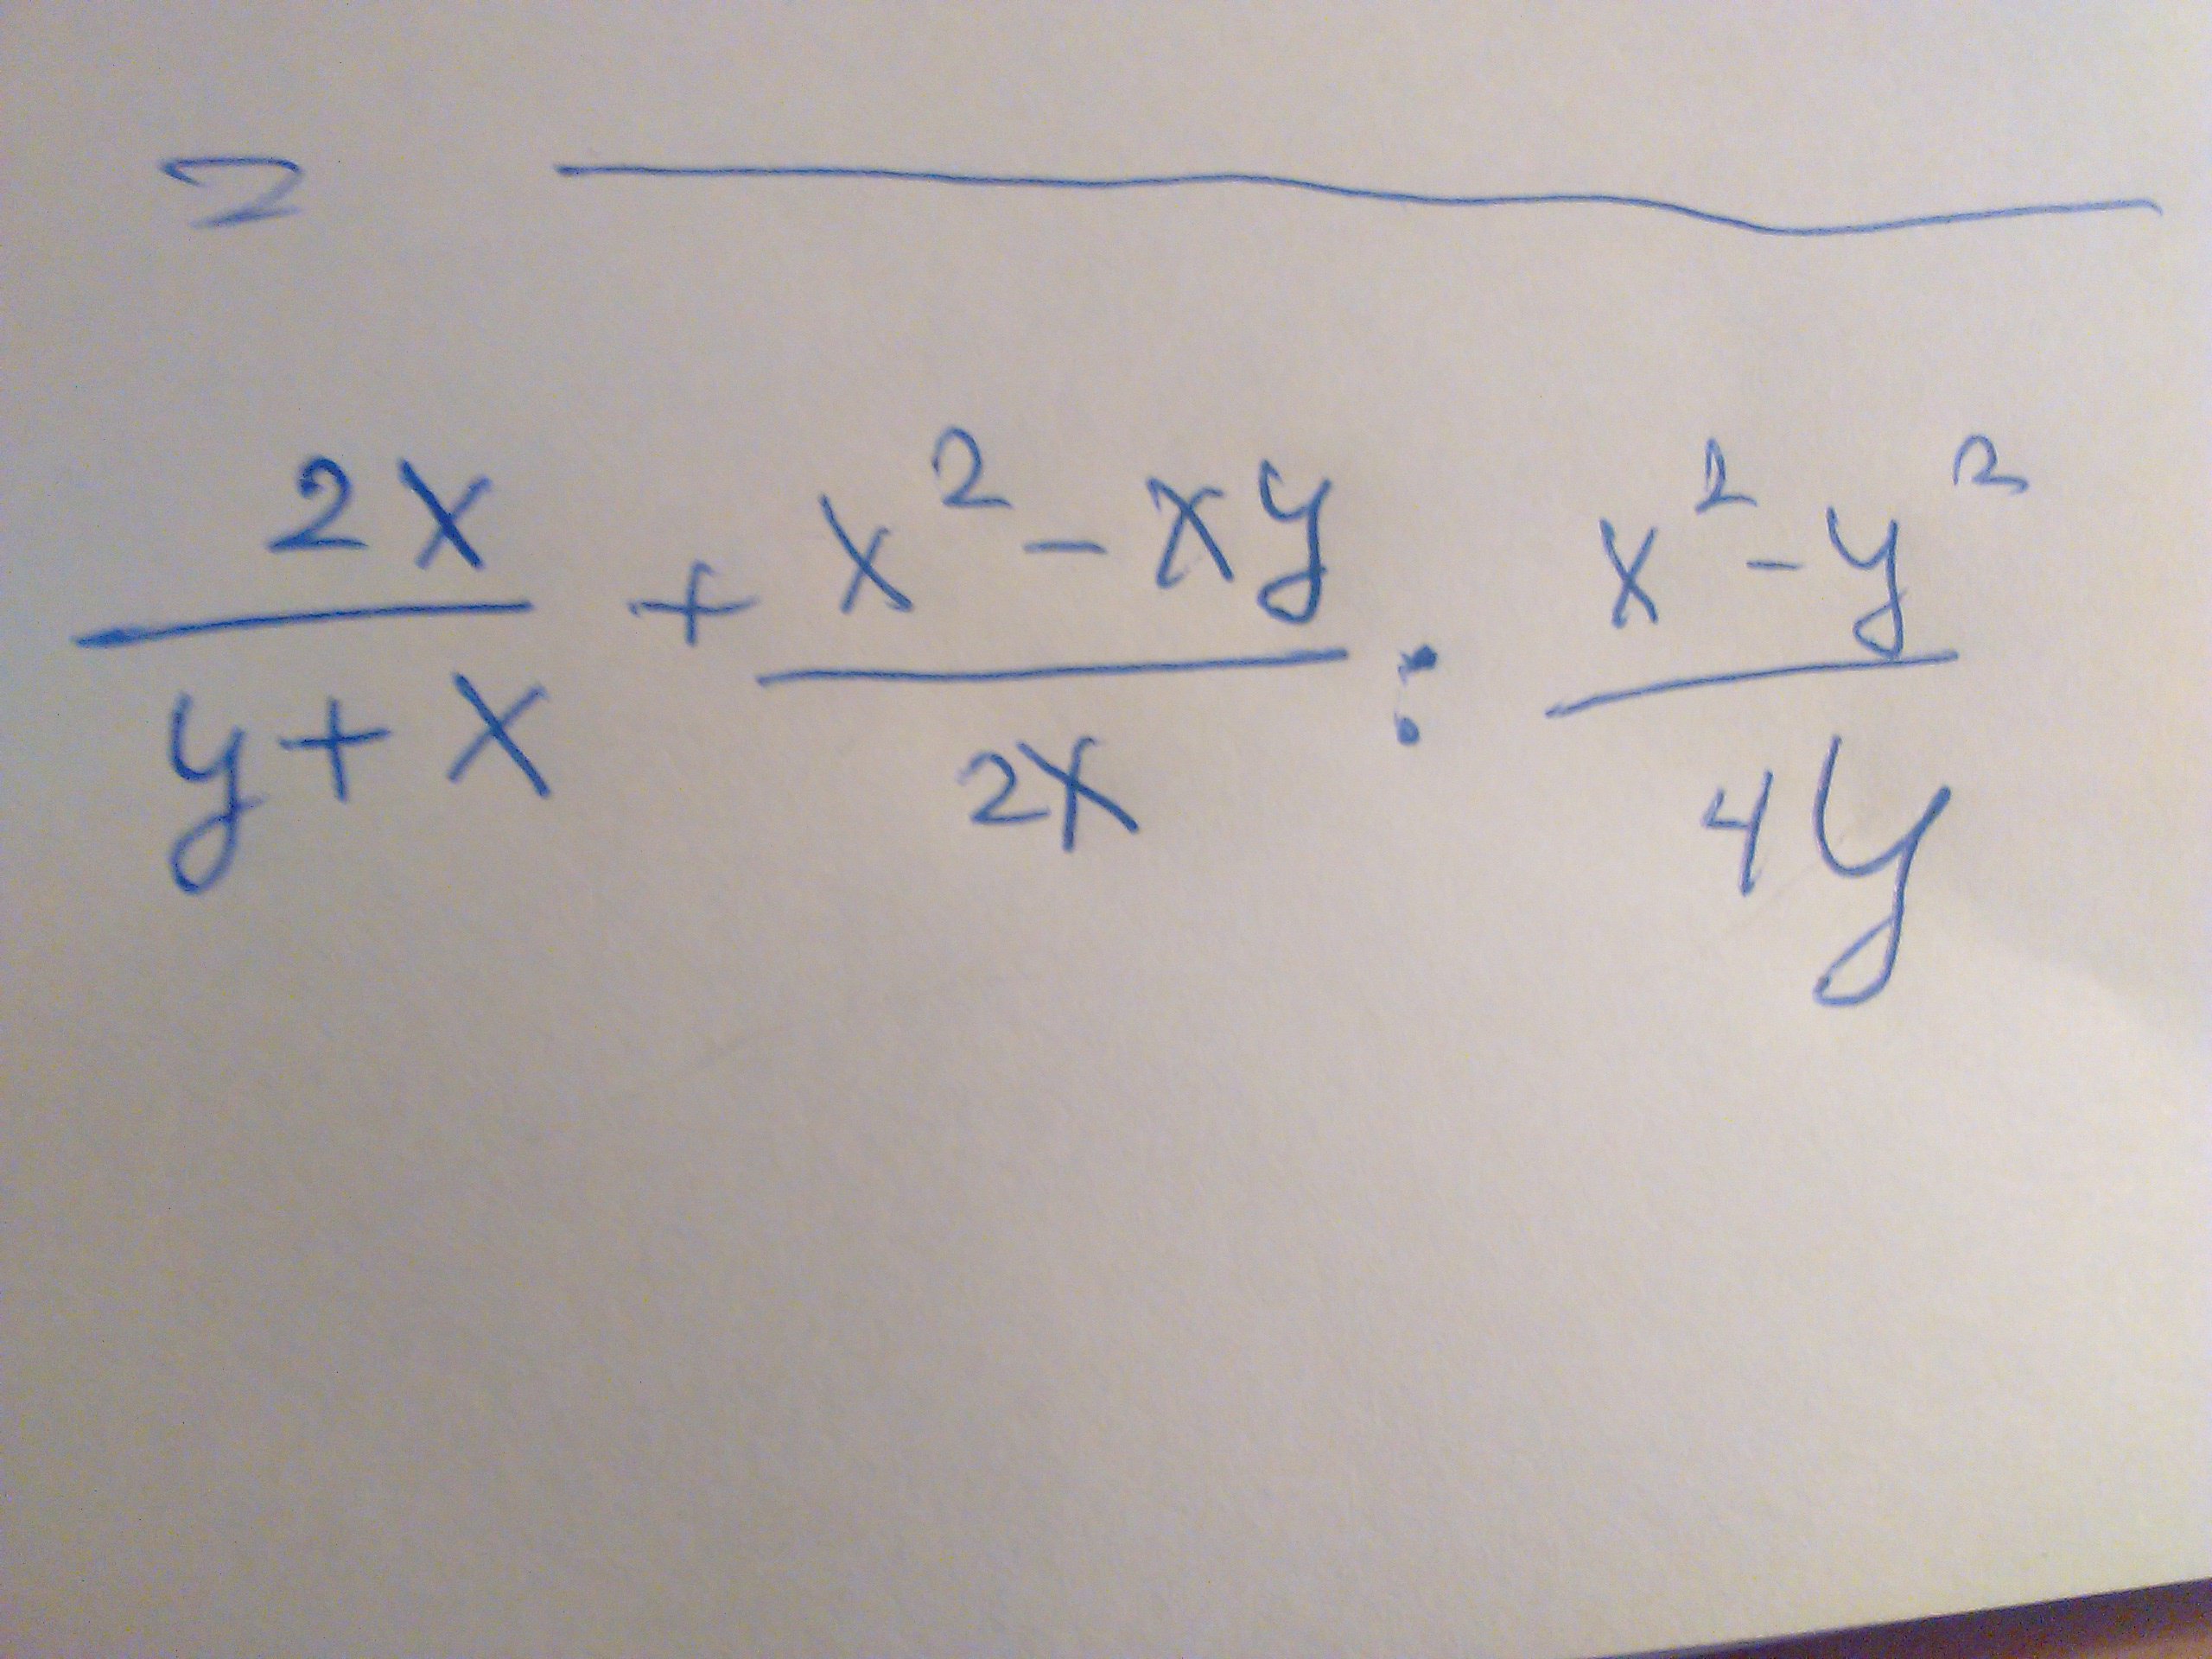 =
2x/(y+x) + (x²-xy)/(2x) : (x²-y²)/(4y)